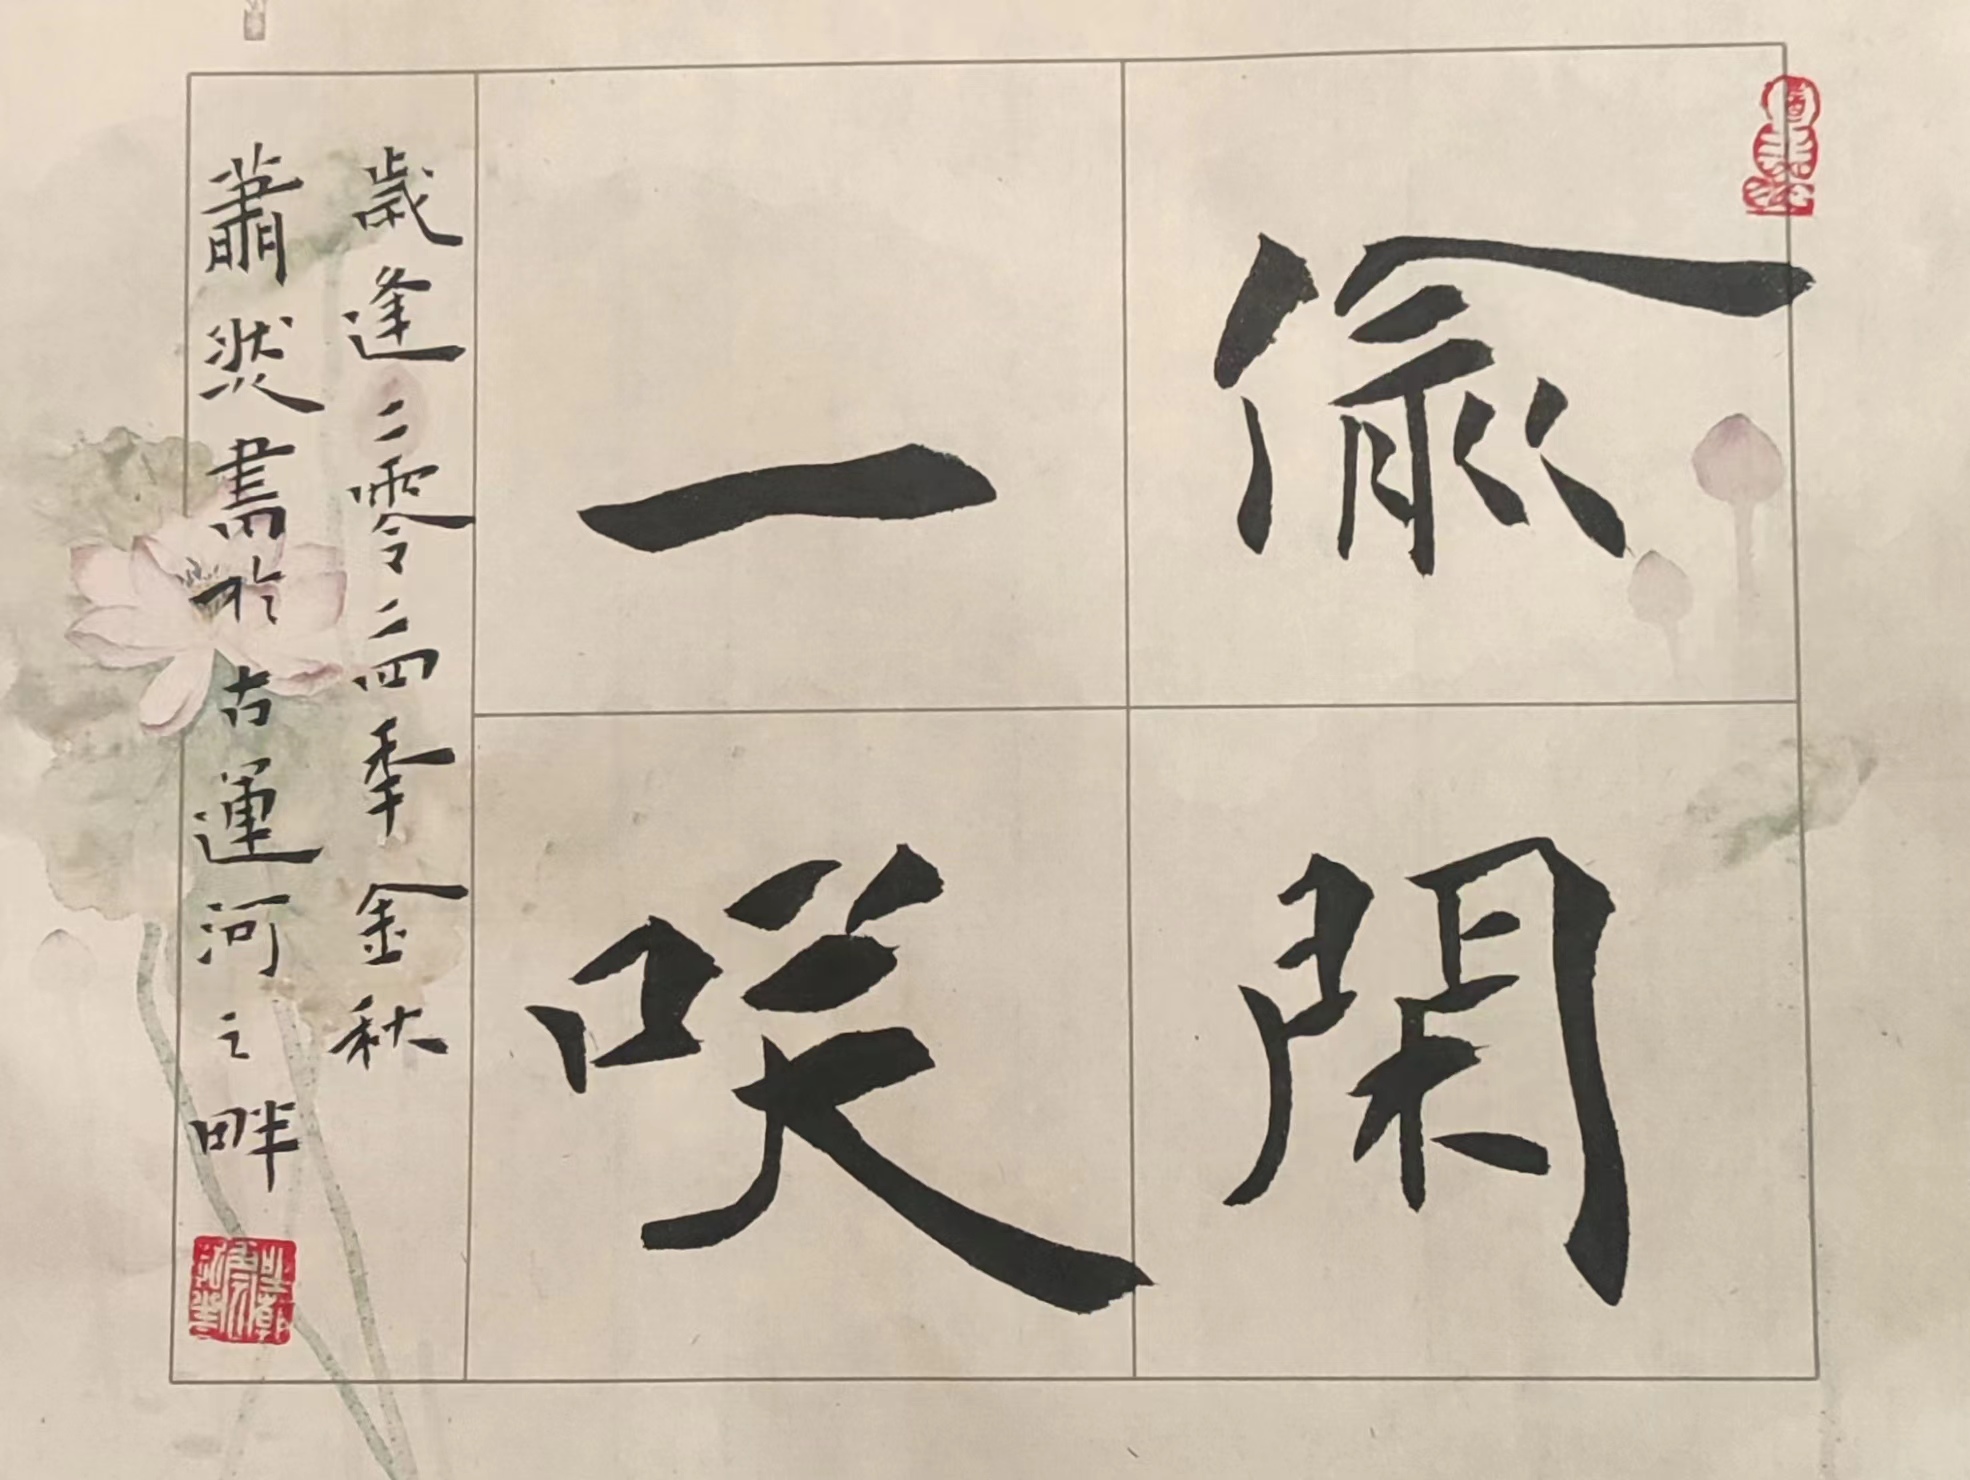 偷閑
一咲
歲逢二零二四季金秋
蕭燚書於古運河之畔